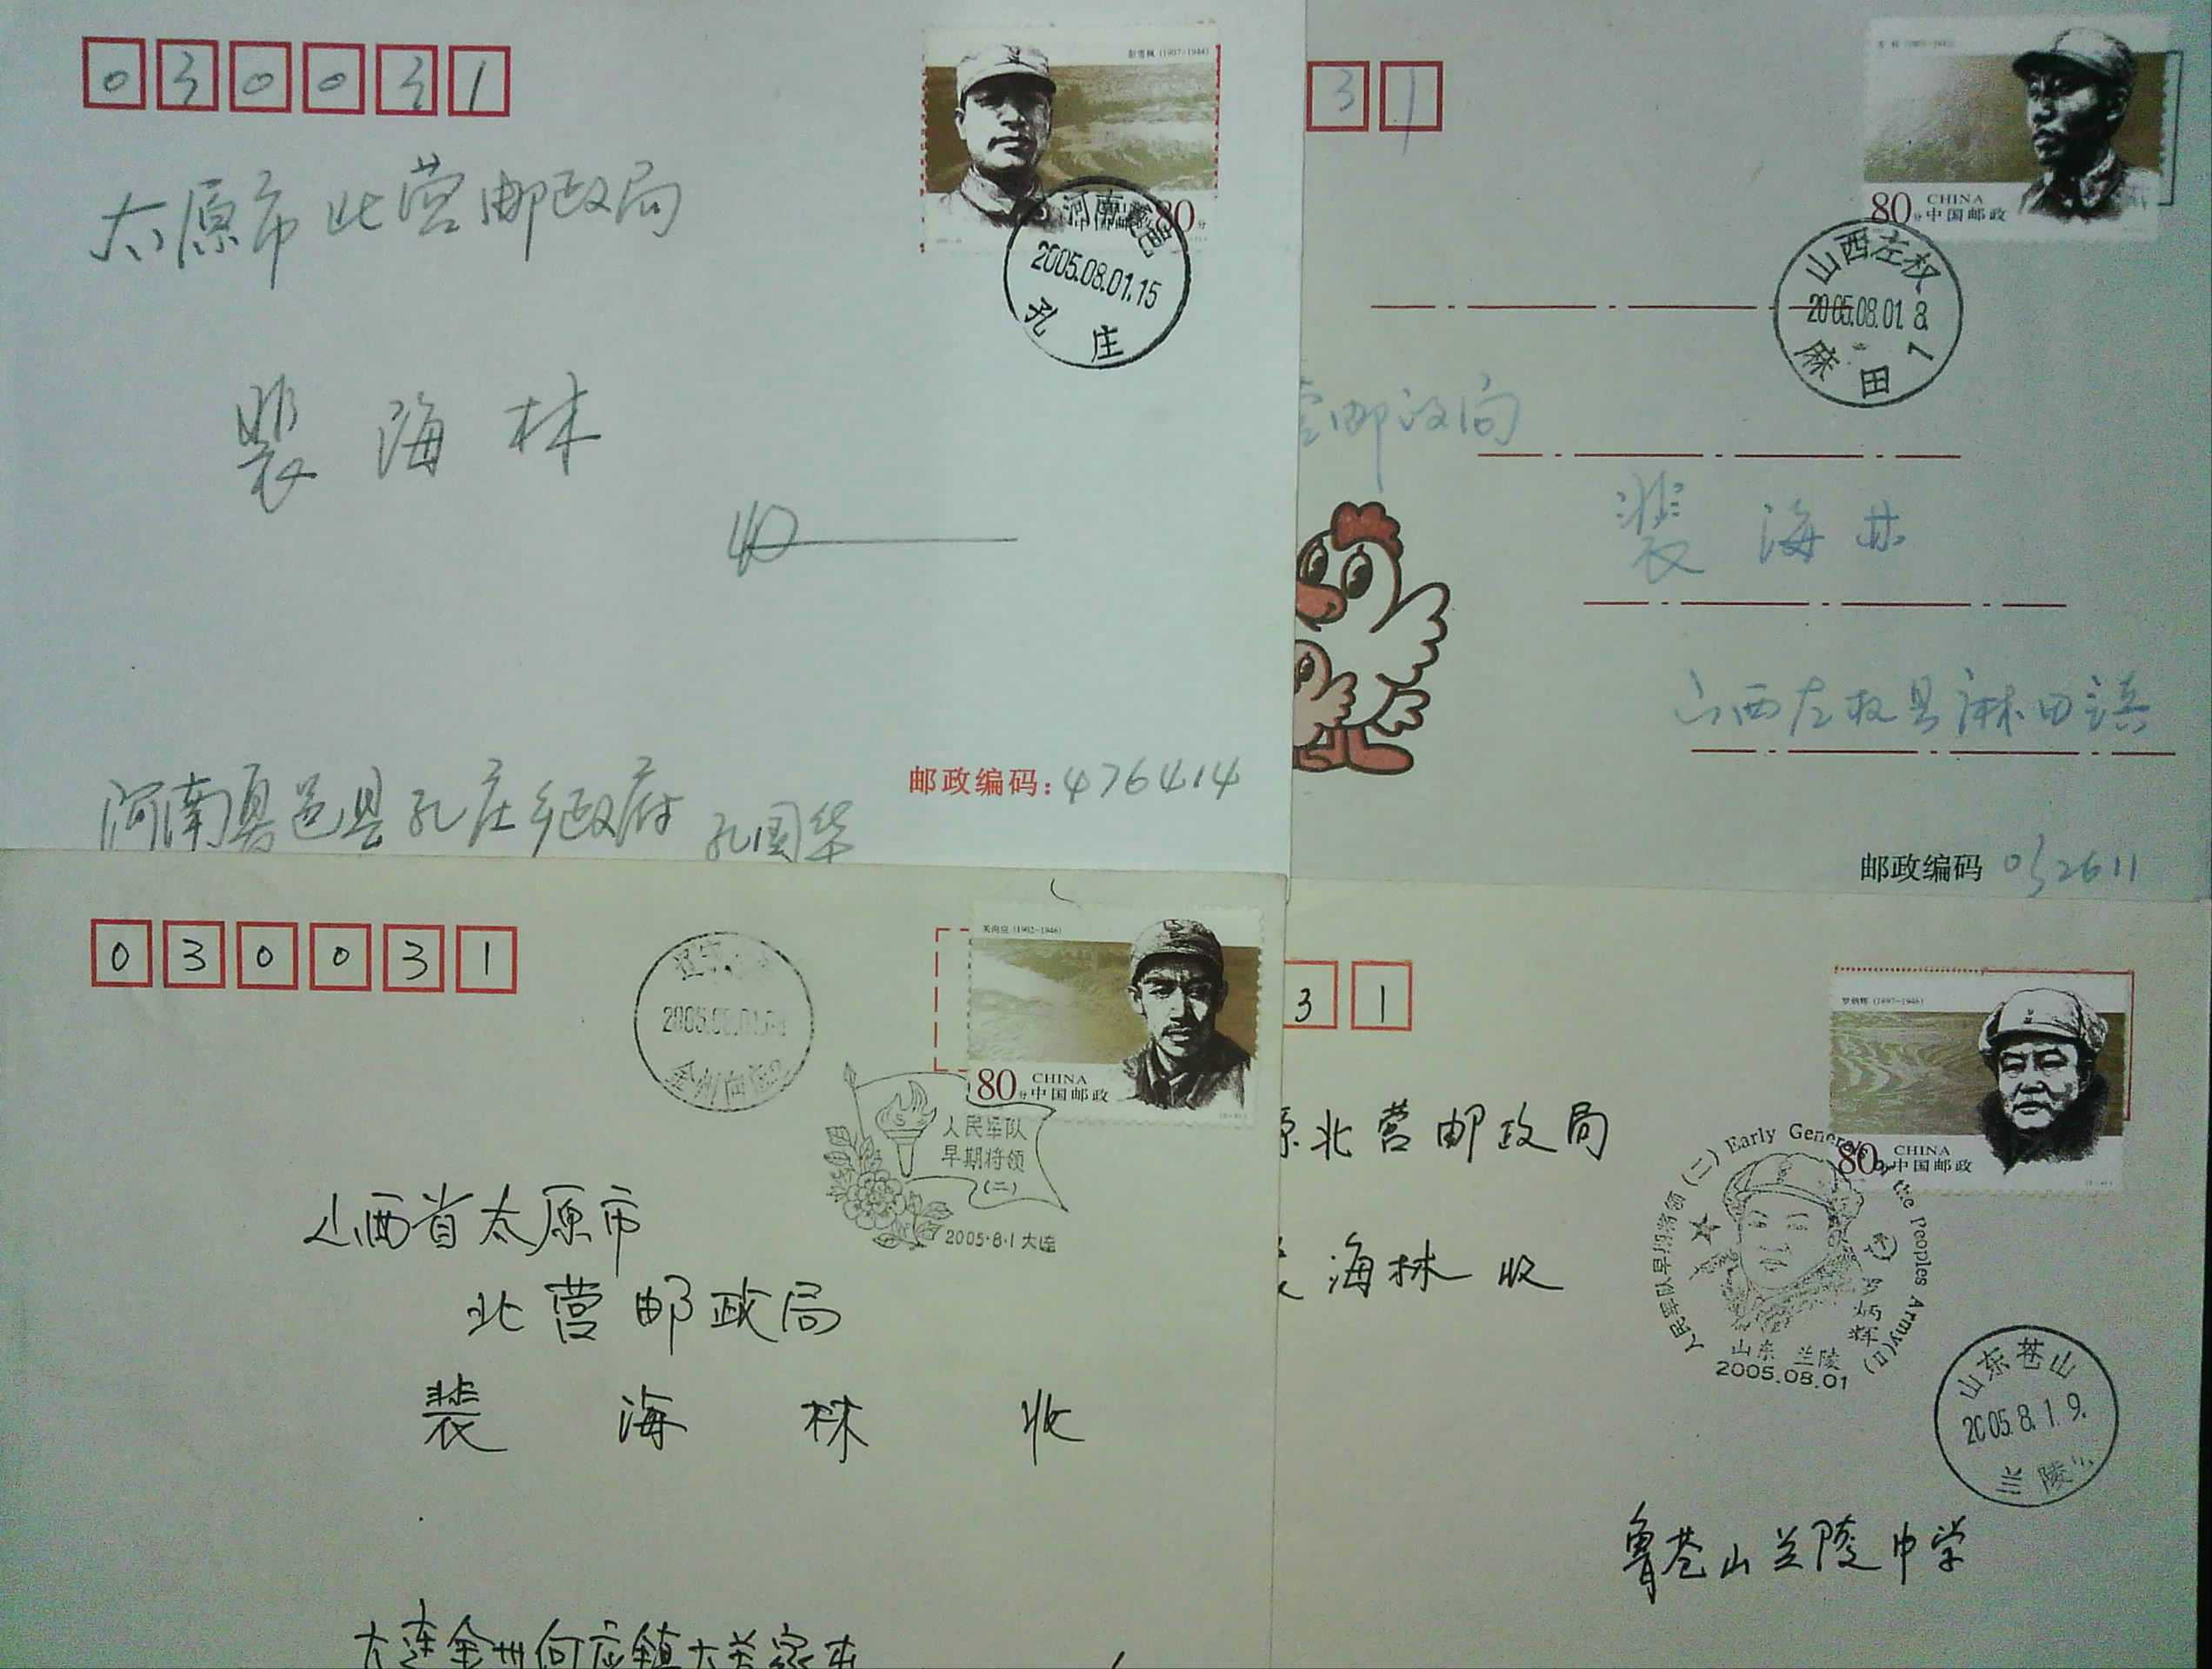 030031
彭雪枫 (1907-1944)
80分
河南夏邑
2005.08.01.15
孔庄
太原市北营邮政局
裴海林
收
邮政编码:476414
河南夏邑县孔庄乡政府 孔国华
31
80分
CHINA
中国邮政
山西左权
2005.08.01.8.
麻田1
营邮政局
裴海林
山西左权县麻田镇
邮政编码 032611
030031
关向应 (1902-1946)
80分
CHINA
中国邮政
人民军队
早期将领
(二)
2005·8·1 大连
金州向应
山西省太原市
北营邮政局
裴海林收
大连金州向应镇大关家屯
31
罗炳辉 (1897-1946)
80分
CHINA
中国邮政
原北营邮政局
海林收
人民军队早期将领(二) Early Generals of the Peoples Army(II)
罗炳辉
山东 兰陵
2005.08.01
山东苍山
2005.8.1.9.
兰陵
鲁苍山兰陵中学